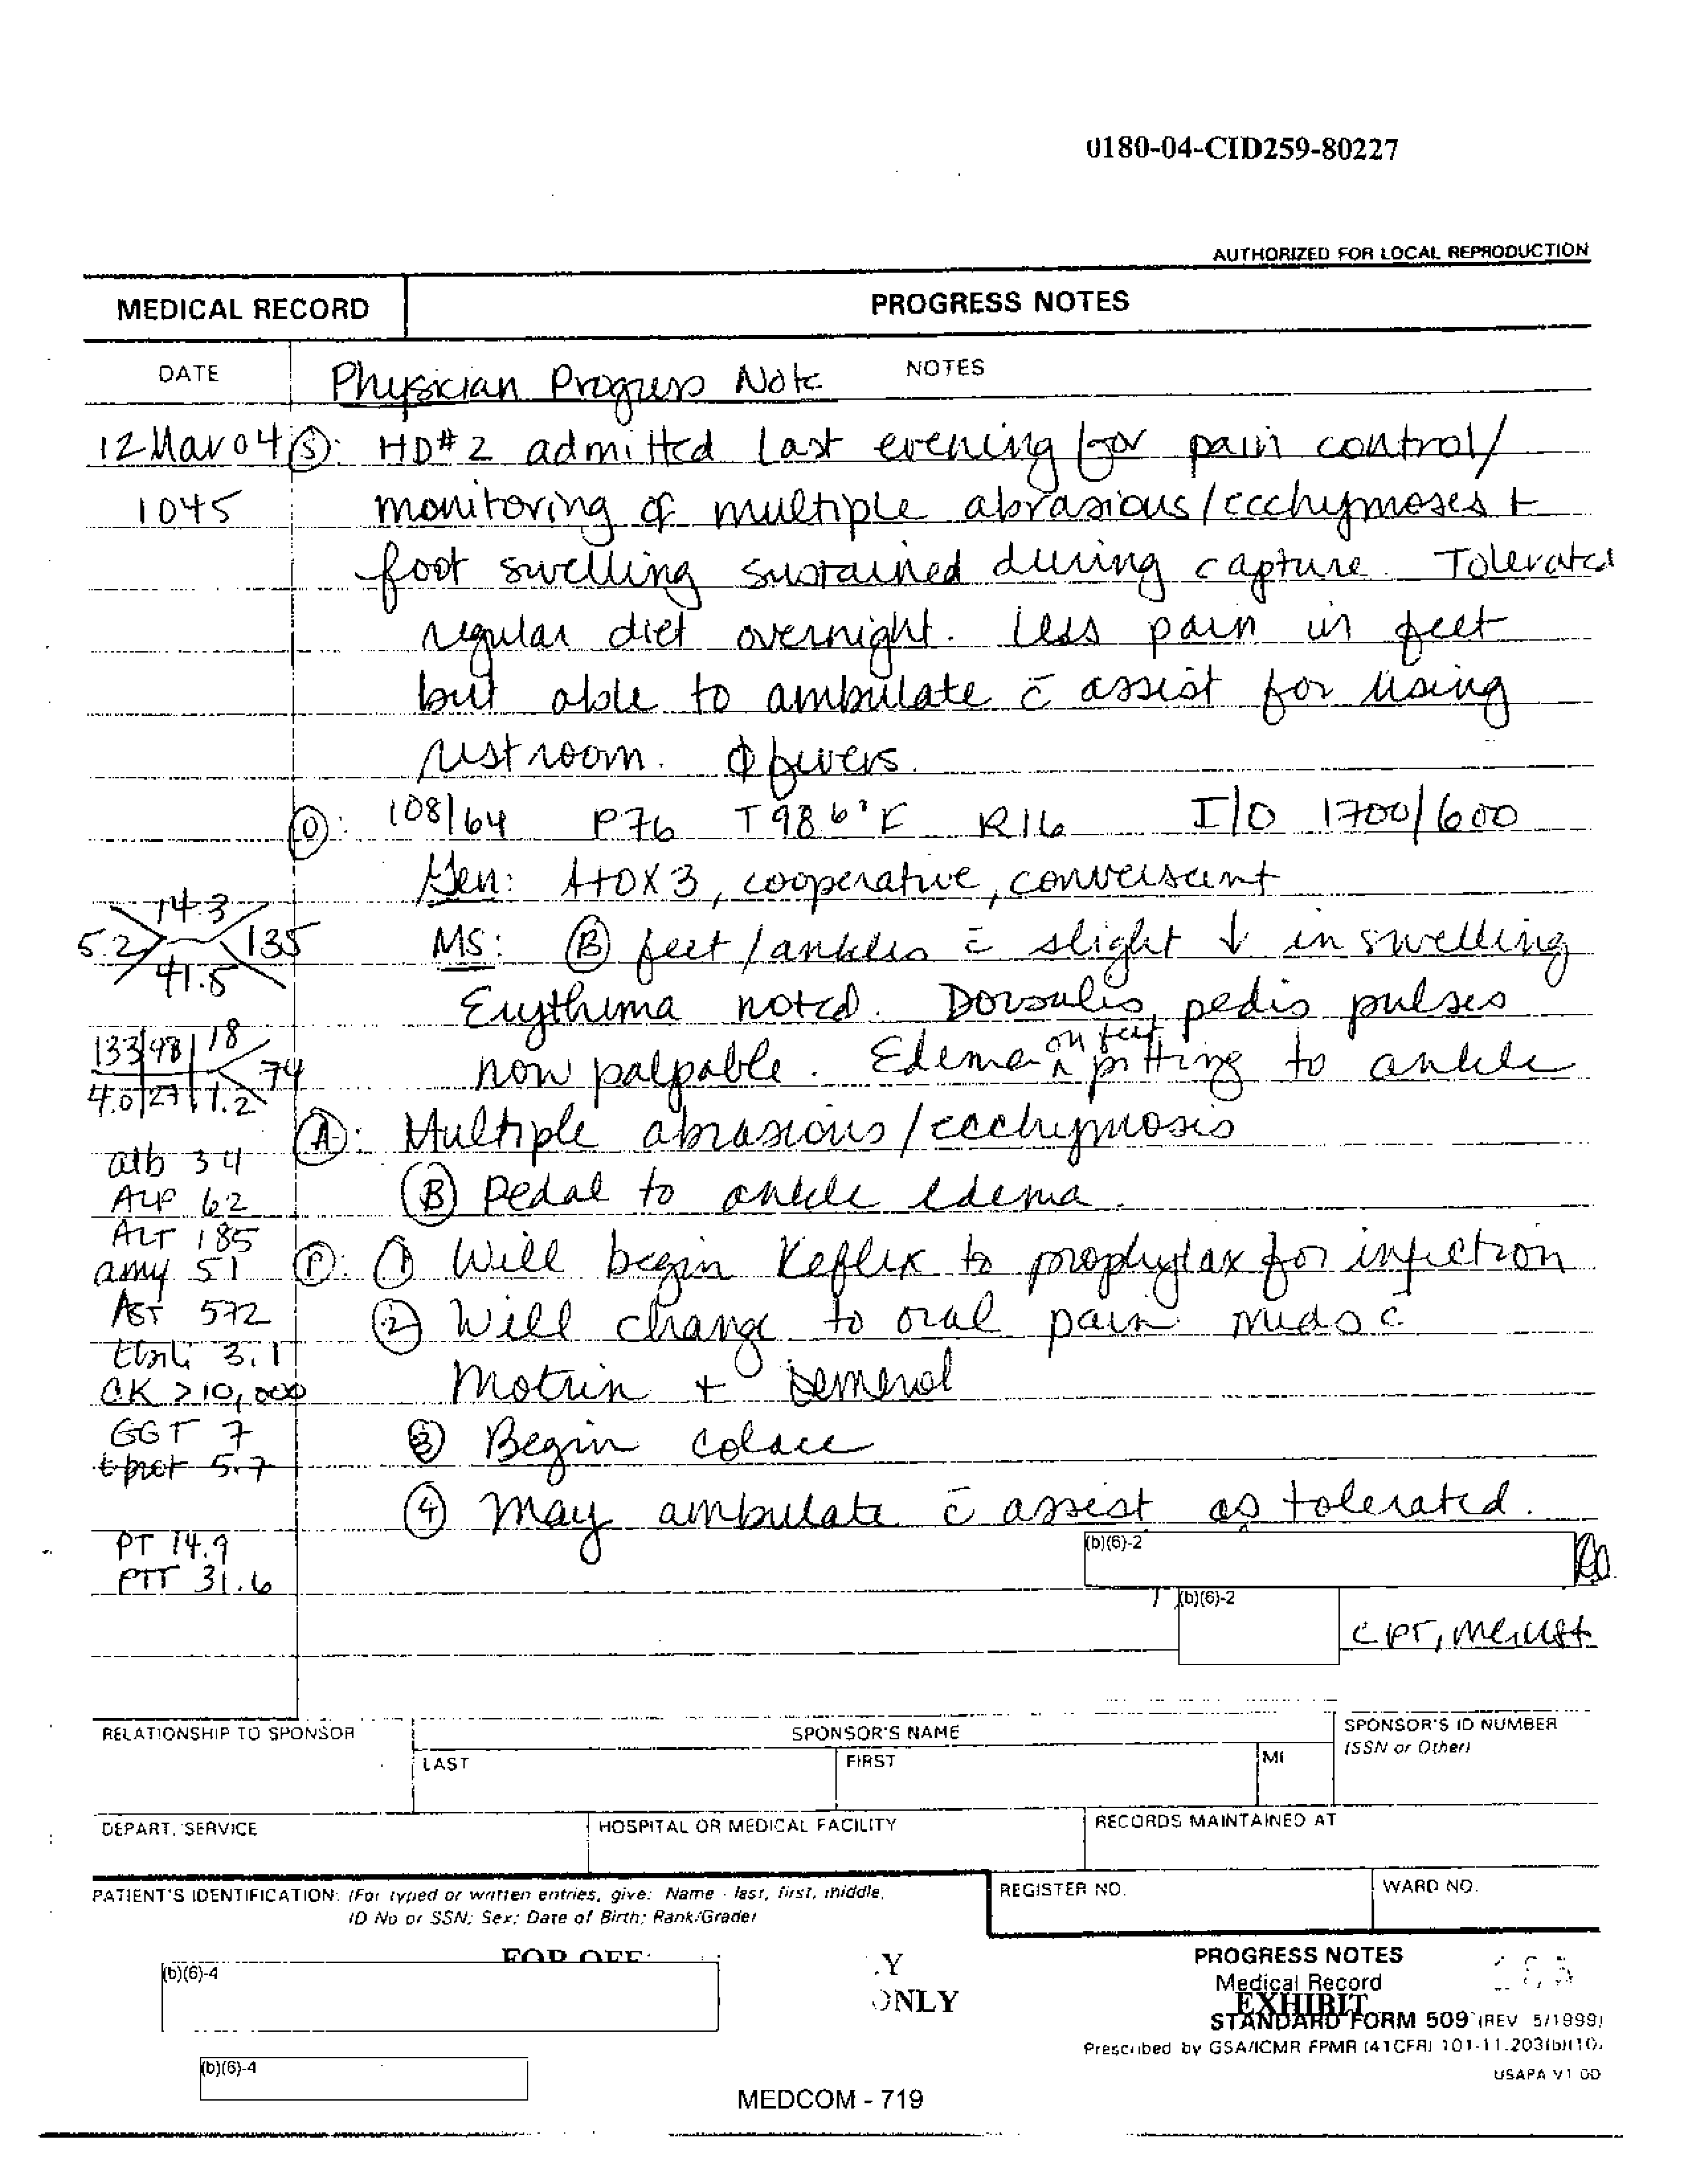 0180-04-CID259-80227
AUTHORIZED FOR LOCAL REPRODUCTION
MEDICAL RECORD
PROGRESS NOTES
DATE
NOTES
Physician Progress Note
12 Mar 04 (S): HD#2 admitted last evening for pain control/
1045 monitoring of multiple abrasions/ecchymoses +
foot swelling sustained during capture. Tolerated
regular diet overnight. Less pain in feet
but able to ambulate c̄ assist for using
restroom. Φ fevers.
(O): 108/64 P76 T98.6°F R16 I/O 1700/600
Gen: A+OX3, cooperative, conversant
14.3
5.2 135
41.5
MS: (B) feet/ankles c̄ slight ↓ in swelling
Erythema noted. Dorsalis pedis pulses
now palpable. Edema on feet pitting to ankle
133 98 18
74
4.0 27 1.2
(A): Multiple abrasions/ecchymosis
(B) Pedal to ankle edema.
alb 3.4
ALP 62
ALT 185
amy 51
AST 572
tbili 3.1
CK >10,000
GGT 7
t prot 5.7
PT 14.9
PTT 31.6
(P): (1) Will begin Keflex to prophylax for infection
(2) Will change to oral pain meds c̄
Motrin + Demerol
(3) Begin colace
(4) May ambulate c̄ assist as tolerated.
(b)(6)-2
(b)(6)-2
CPT,
RELATIONSHIP TO SPONSOR
SPONSOR'S NAME
SPONSOR'S ID NUMBER
(SSN or Other)
LAST
FIRST
MI
DEPART. SERVICE
HOSPITAL OR MEDICAL FACILITY
RECORDS MAINTAINED AT
PATIENT'S IDENTIFICATION: (For typed or written entries, give: Name - last, first, middle,
ID No or SSN; Sex; Date of Birth; Rank/Grade)
REGISTER NO.
WARD NO.
(b)(6)-4
(b)(6)-4
ONLY
PROGRESS NOTES
Medical Record
EXHIBIT
STANDARD FORM 509 (REV 5/1999)
Prescribed by GSA/ICMR FPMR (41CFR) 101-11.203(b)(10)
USAPA V1.00
MEDCOM - 719